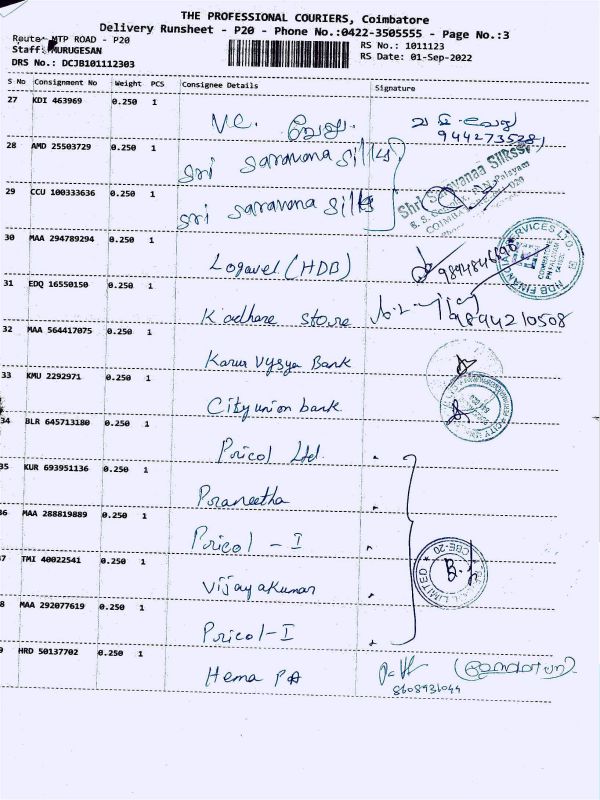 THE PROFESSIONAL COURIERS, Coimbatore
Delivery Runsheet - P20 - Phone No.:0422-3505555 - Page No.:3
Route: MTP ROAD - P20
Staff: MURUGESAN
DRS No.: DCJB101112303
RS No.: 1011123
RS Date: 01-Sep-2022
S No Consignment No Weight PCS Consignee Details Signature
27 KDI 463969 0.250 1 V.C. வேலு 9442735281
28 AMD 25503729 0.250 1 Sri Saravana Silks
29 CCU 100333636 0.250 1 Sri Saravana Silks
Shri Saravanaa Silkss
30 MAA 294789294 0.250 1 Logavel (HDB) 9894846690
HDB FINANCIAL SERVICES LTD.
31 EDQ 16550150 0.250 1 Kadhare Store 9894210508
32 MAA 564417075 0.250 1 Karur Vysya Bank
33 KMU 2292971 0.250 1 City union bank
34 BLR 645713180 0.250 1 Pricol Ltd.
35 KUR 693951136 0.250 1 Praneetha
36 MAA 288819889 0.250 1 Pricol - I
LIMITED CBE-20
7 TMI 40022541 0.250 1 Vijayakumar
8 MAA 292077619 0.250 1 Pricol-I
9 HRD 50137702 0.250 1 Hema PA
8608931044